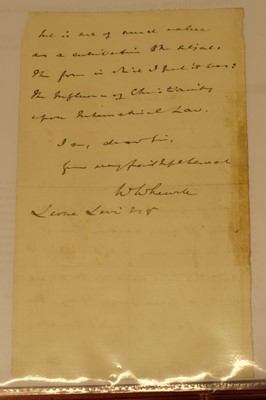 but is not of much value
as a contribution to the object.
The form in which I put it was:
the Influence of Christianity
upon International Law.
I am, dear Sir,
Your very faithful Servant
W Whewell
Leone Levi Esqr